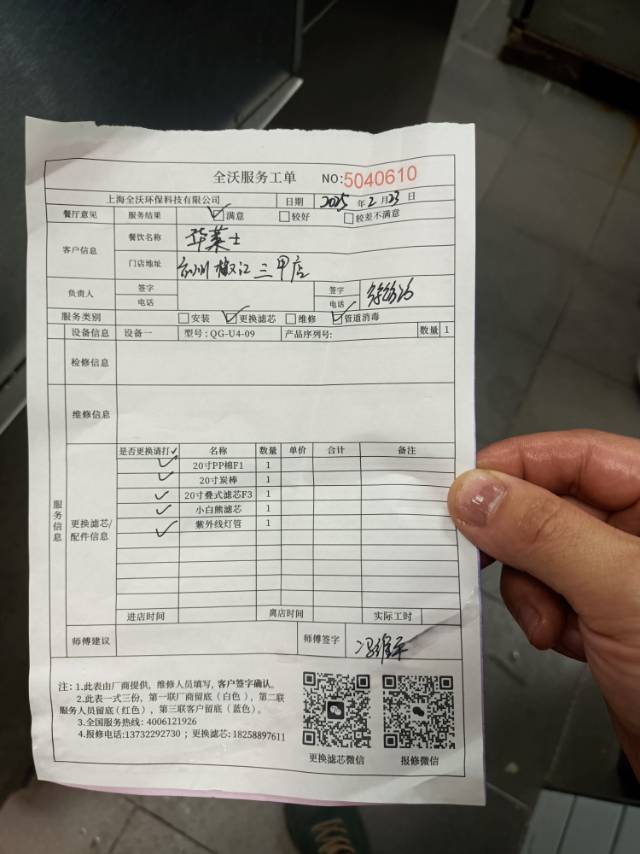 全沃服务工单 NO:5040610
上海全沃环保科技有限公司 日期 2025 年 2 月 23 日
餐厅意见 服务结果 ☑满意 □较好 □较差不满意
客户信息 餐饮名称 华莱士
门店地址 台州 椒江 三甲店
负责人 签字 签字
电话 电话
服务类别 □安装 ☑更换滤芯 □维修 ☑管道消毒
设备信息 设备一 型号: QG-U4-09 产品序列号: 数量 1
检修信息
维修信息
服务信息
更换滤芯/配件信息
是否更换请打✓ 名称 数量 单价 合计 备注
✓ 20寸PP棉F1 1
✓ 20寸炭棒 1
✓ 20寸叠式滤芯F3 1
✓ 小白熊滤芯 1
✓ 紫外线灯管 1
进店时间 离店时间 实际工时
师傅建议 师傅签字
注: 1.此表由厂商提供, 维修人员填写, 客户签字确认。
2.此表一式三份, 第一联厂商留底(白色), 第二联
服务人员留底(红色), 第三联客户留底(蓝色)。
3.全国服务热线: 4006121926
4.报修电话:13732292730 ; 更换滤芯: 18258897611
更换滤芯微信 报修微信